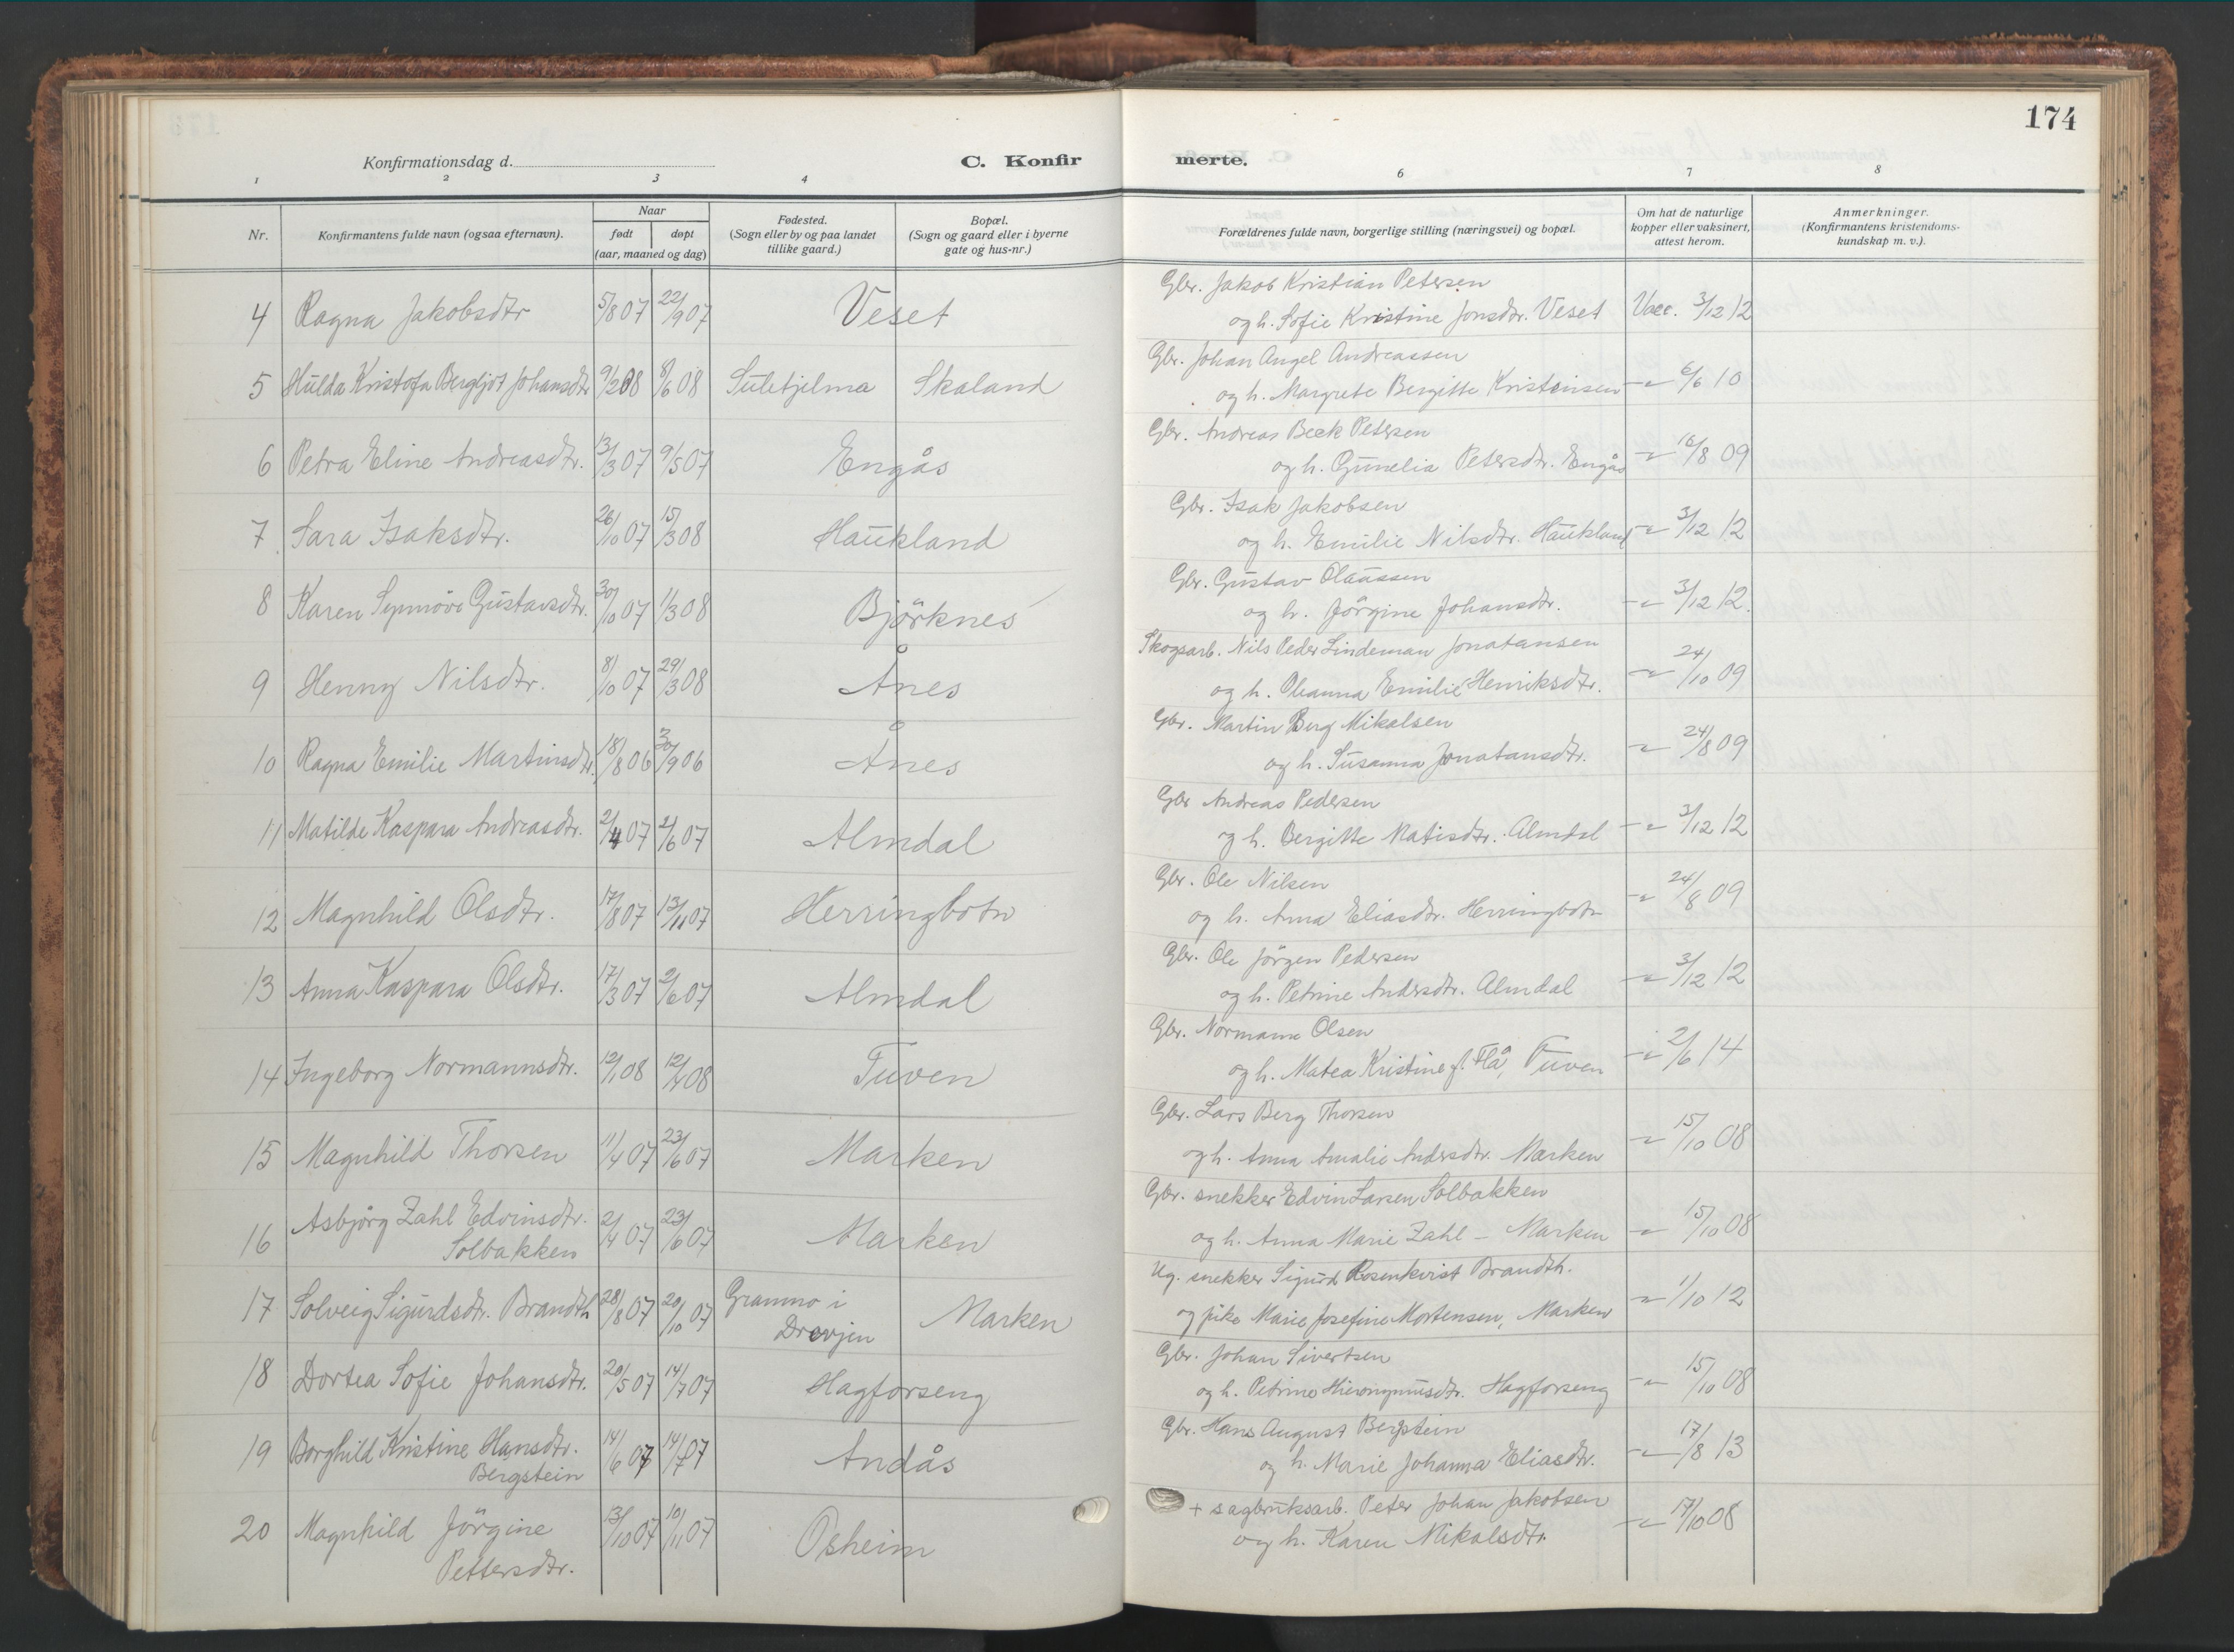 174
Konfirmationsdag d.
C. Konfir
merte.
1 2 3 4 6 7 8
Nr.
Konfirmantens fulde navn (ogsaa efternavn).
Naar
født døpt
(aar, maaned og dag)
Fødested.
(Sogn eller by og paa landet
tillike gaard.)
Bopæl.
(Sogn og gaard eller i byerne
gate og hus-nr.)
Forældrenes fulde navn, borgerlige stilling (næringsvei) og bopæl.
Om hat de naturlige
kopper eller vaksinert,
attest herom.
Anmerkninger.
(Konfirmantens kristendoms-
kundskap m. v.).
4 Ragna Jakobsdtr 5/8 07 22/9 07 Veset
Gbr. Jakob Kristian Petersen
og h. Sofie Kristine Jonsdtr. Veset Vacc. 3/12 12
5 Hulda Kristofa Bergljot Johansdtr 9/2 08 8/6 08 Sulitjelma Skaland
Gbr. Johan Angel Andreassen
og h. Margrete Bergitte Kristensen -"- 6/6 10
6 Petra Eline Andreasdtr. 13/3 07 9/5 07 Engås
Gbr. Andreas Beck Petersen
og h. Gunelia Petersdtr. Engås -"- 16/8 09
7 Sara Isaksdtr. 26/10 07 15/3 08 Haukland
Gbr. Isak Jakobsen
og h. Emilie Nilsdtr. Haukland -"- 3/12 12
8 Karen Synnöve Gustavsdtr. 30/10 07 1/3 08 Björknes
Gbr. Gustav Olaussen
og h. Jörgine Johansdtr. -"- 3/12 12.
9 Henny Nilsdtr. 8/10 07 29/3 08 Ånes
Skogsarb. Nils Peder Lindeman Jonatansen
og h. Oleanna Emilie Henriksdtr. -"- 24/10 09
10 Ragna Emilie Martinsdtr. 18/8 06 30/9 06 Ånes
Gbr. Martin Berg Mikalsen
og h. Susanna Jonatansdtr. -"- 24/8 09
11 Matilde Kaspara Andreasdtr. 2/4 07 2/6 07 Almdal
Gbr Andreas Pedersen
og h. Bergitte Matisdtr. Almdal -"- 3/12 12
12 Magnhild Olsdtr. 17/8 07 13/11 07 Herringbotn
Gbr. Ole Nilsen
og h. Anna Eliasdtr. Herringbotn -"- 24/8 09
13 Anna Kaspara Olsdtr. 17/3 07 2/6 07 Almdal
Gbr. Ole Jörgen Pedersen
og h. Petrine Andersdtr. Almdal -"- 3/12 12
14 Ingeborg Normannsdtr. 12/1 08 12/4 08 Tuven
Gbr. Normann Olsen
og h. Matea Kristine f. Flå, Tuven -"- 2/6 14
15 Magnhild Thorsen 11/4 07 23/6 07 Marken
Gbr. Lars Berg Thorsen
og h. Anna Amalie Andersdtr. Marken -"- 15/10 08
16 Asbjörg Zahl Edvinsdtr. 2/4 07 23/6 07 Marken
Solbakken
Gbr. snekker Edvin Larsen Solbakken
og h. Anna Marie Zahl - Marken -"- 15/10 08
17 Solveig Sigurdsdtr. Brandth 28/8 07 20/10 07 Gramno i
Drevjen Marken
Ug. snekker Sigurd Rosenkvist Brandth.
og pike Marie Josefine Mortensen, Marken -"- 1/10 12
18 Dortea Sofie Johansdtr. 20/5 07 14/7 07 Hagforseng
Gbr. Johan Sivertsen
og h. Petrine Hieronymusdtr. Hagforseng -"- 15/10 08
19 Borghild Kristine Hansdtr. 14/6 07 14/7 07 Andås
Bergstein
Gbr. Hans August Bergstein
og h. Marie Johanna Eliasdtr. -"- 17/8 13
20 Magnhild Jörgine 13/10 07 10/11 07 Osheim
Pettersdtr.
+ sagbruksarb. Peter Johan Jakobsen
og h. Karen Mikalsdtr. -"- 17/10 08